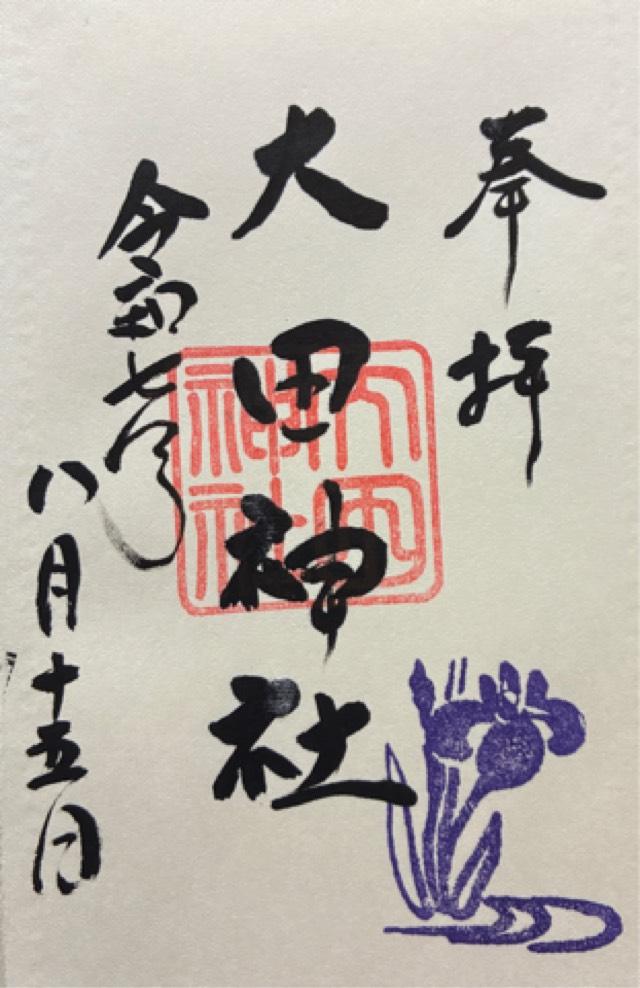 奉拝
大田神社
令和七年
八月十五日
大田神社